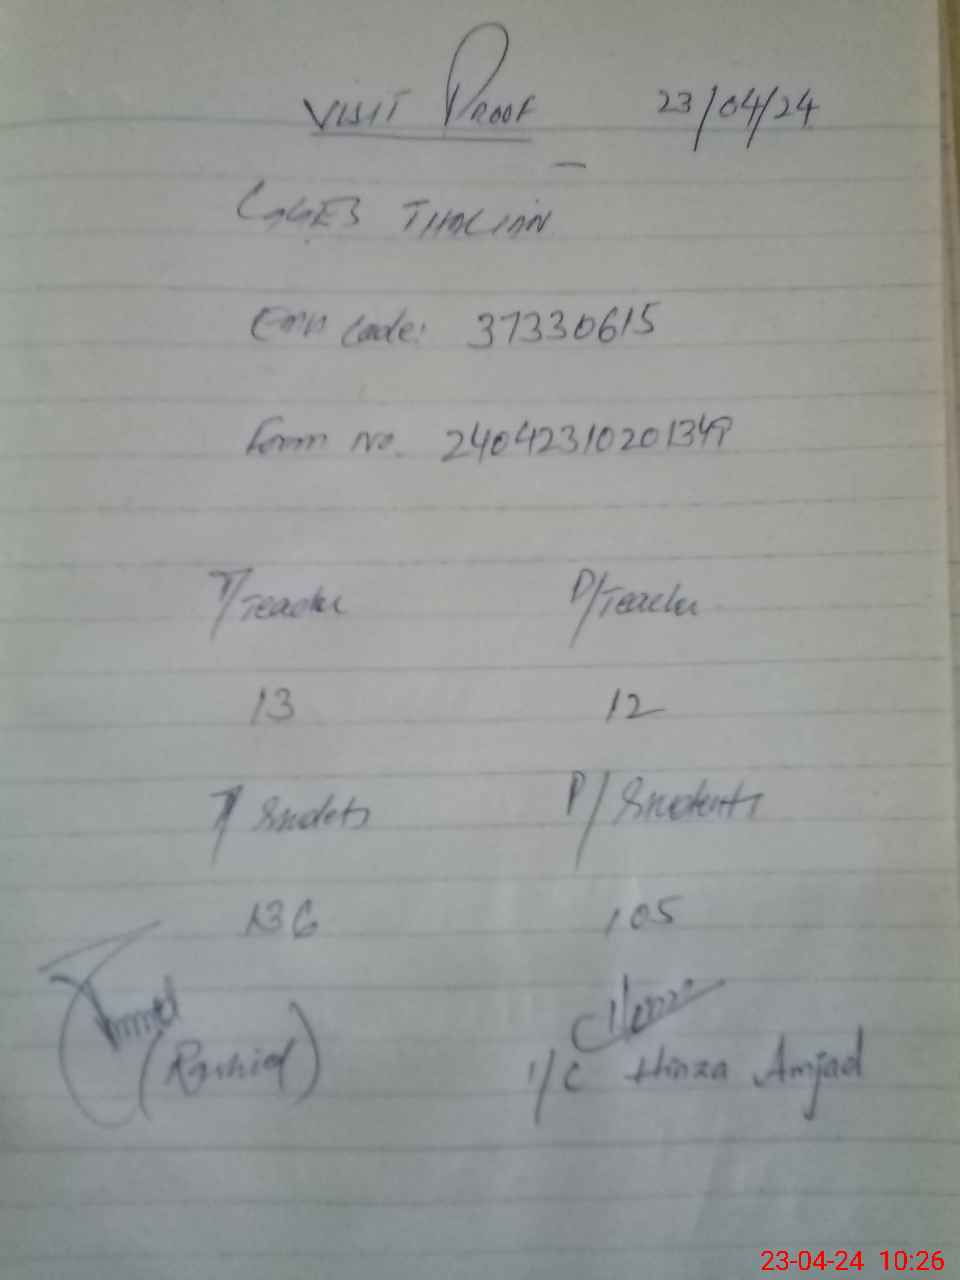 VISIT PROOF 23/04/24
GGES THALIAN
Emis Code: 37330615
Form No. 24042310201349
T/Teacher P/Teacher
13 12
T/Students P/Students
136 105
(Rashid)
I/C Hinza Amjad
23-04-24 10:26